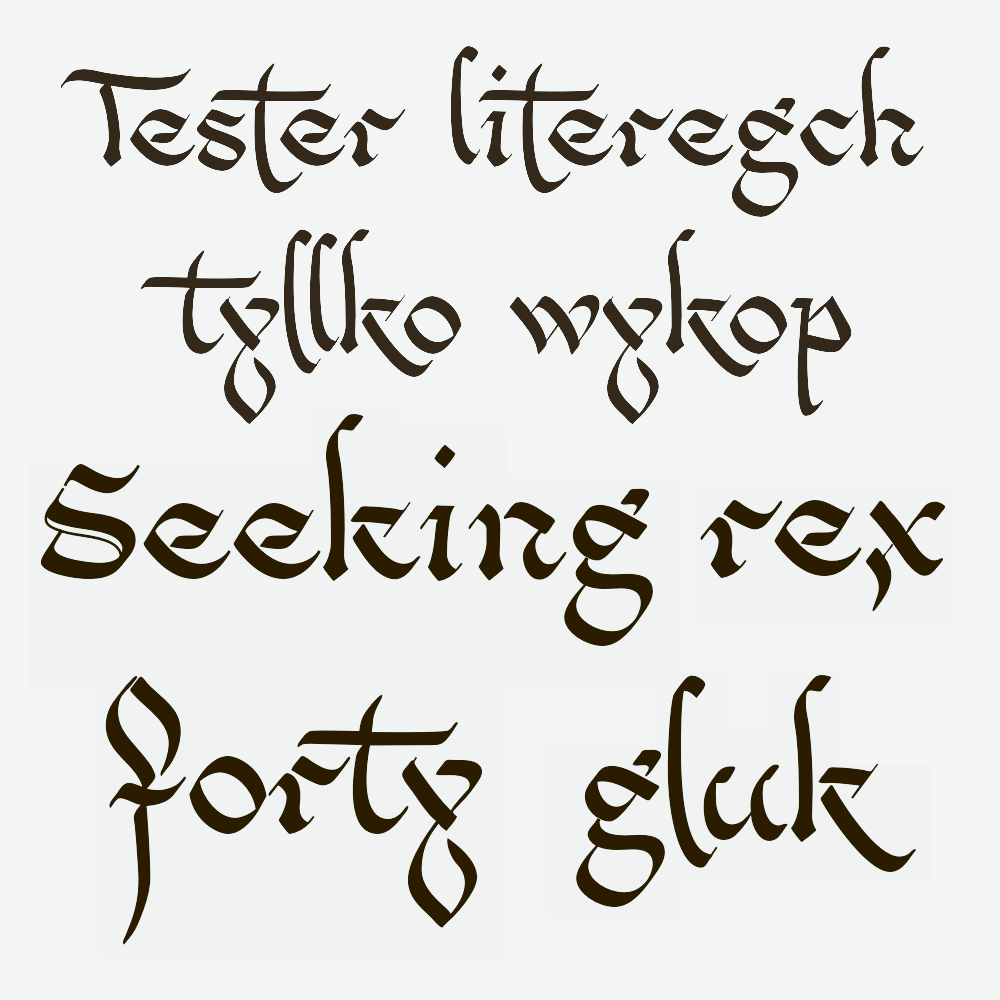 Tester literegch
tyllko wykop
Seeking rex
forty gluk